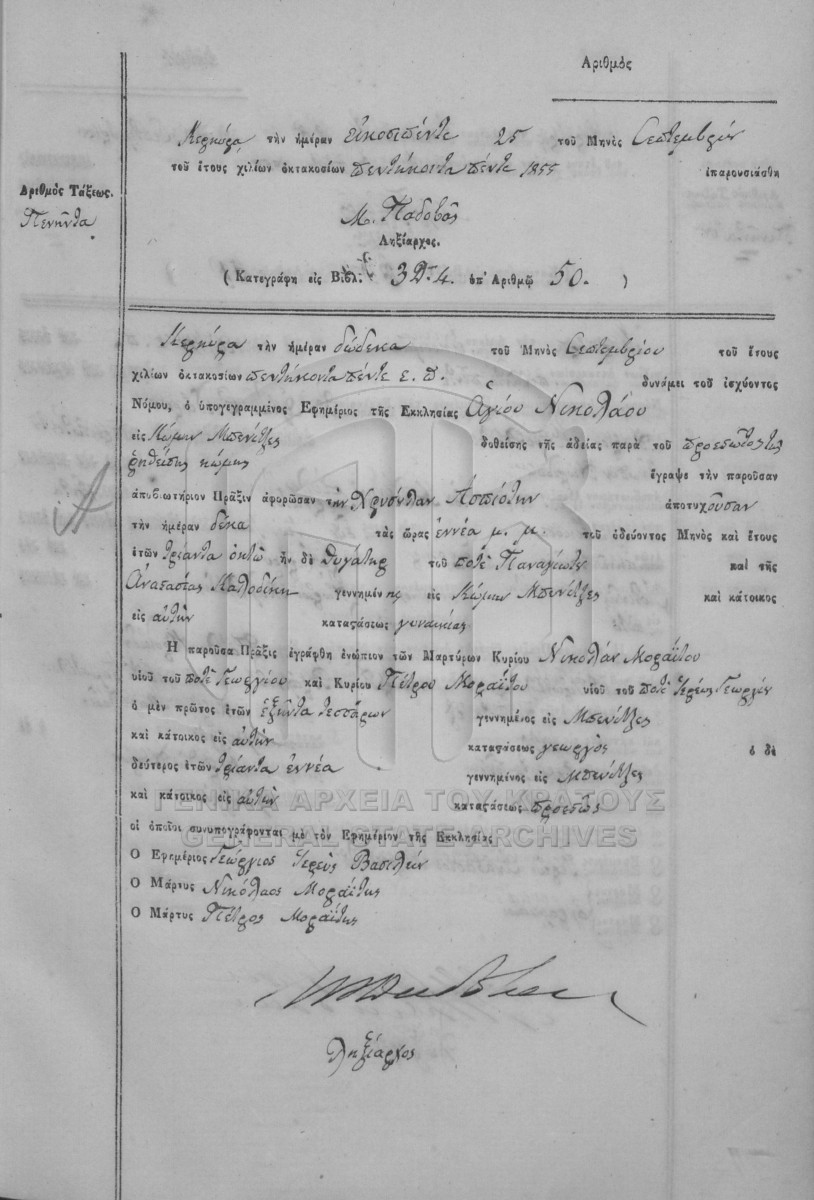 Αριθμὸς
Κερκύρα τὴν ἡμέραν εἰκοσιπέντε 25 τοῦ Μηνὸς Σεπτεμβρίου
τοῦ ἔτους χιλίων ὀκτακοσίων πεντήκοντα πέντε 1855 ἐπαρουσιάσθη
Ἀριθμὸς Τάξεως.
Πενῆντα
Μ. Παδοβᾶς
Ληξίαρχος.
( Κατεγράφη εἰς Βιβλ: 3 4. ὑπ' Ἀριθμῷ 50. )
Κερκύρα τὴν ἡμέραν δώδεκα τοῦ Μηνὸς Σεπτεμβρίου τοῦ ἔτους
χιλίων ὀκτακοσίων πεντήκοντα πέντε ε. π. δυνάμει τοῦ ἰσχύοντος
Νόμου, ὁ ὑπογεγραμμένος Ἐφημέριος τῆς Ἐκκλησίας Ἁγίου Νικολάου
εἰς Κώμην Μπενίτζες δοθείσης τῆς ἀδείας παρὰ τοῦ προεστῶτος τῆς
ῥηθείσης κώμης ἔγραψε τὴν παροῦσαν
ἀποβιωτήριον Πρᾶξιν ἀφορῶσαν τὴν Ἀσπιώτην ἀποτυχοῦσαν
τὴν ἡμέραν δέκα τὰς ὥρας ἐννέα μ. μ. τοῦ ὁδεύοντος Μηνὸς καὶ ἔτους
ἐτῶν τριάντα ὀκτὼ ἦν δὲ θυγάτηρ τοῦ ποτὲ Παναγιώτη καὶ τῆς
Ἀναστασίας Καλοδίκη γεννημένης εἰς Κώμην Μπενίτζες καὶ κάτοικος
εἰς αὐτὴν καταστάσεως γυναικείας
Ἡ παροῦσα Πρᾶξις ἐγράφθη ἐνώπιον τῶν Μαρτύρων Κυρίου Νικολάου Μοραΐτου
υἱοῦ τοῦ ποτὲ Γεωργίου καὶ Κυρίου Πέτρου Μοραΐτου υἱοῦ τοῦ ποτὲ Ἱερέως Γεωργίου
ὁ μὲν πρῶτος ἐτῶν ἑξῆντα τεσσάρων γεννημένος εἰς Μπενίτζες
καὶ κάτοικος εἰς αὐτὴν καταστάσεως γεωργὸς ὁ δὲ
δεύτερος ἐτῶν τριάντα ἐννέα γεννημένος εἰς Μπενίτζες
καὶ κάτοικος εἰς αὐτὴν καταστάσεως προεστὼς
οἱ ὁποῖοι συνυπογράφονται μὲ τὸν Ἐφημέριον τῆς Ἐκκλησίας
Ὁ Ἐφημέριος Γεώργιος Ἱερεὺς
Ὁ Μάρτυς Νικόλαος Μοραΐτης
Ὁ Μάρτυς Πέτρος Μοραΐτης
Ληξίαρχος
ΓΕΝΙΚΑ ΑΡΧΕΙΑ ΤΟΥ ΚΡΑΤΟΥΣ
GENERAL STATE ARCHIVES